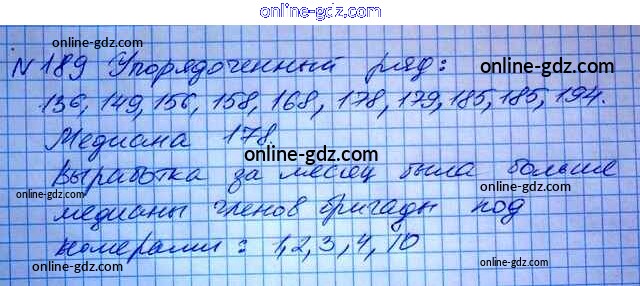 online-gdz.com
online-gdz.com
N 189 Упорядоченный ряд:
online-gdz.com
136, 149, 156, 158, 168, 178, 179, 185, 185, 194.
Медиана 178
online-gdz.com
online-gdz.com
Выработка за месяц была больше
online-gdz.com
online-gdz.com
медианы членов бригады под
online-gdz.com
номерами: 1, 2, 3, 4, 10
online-gdz.com
online-gdz.com